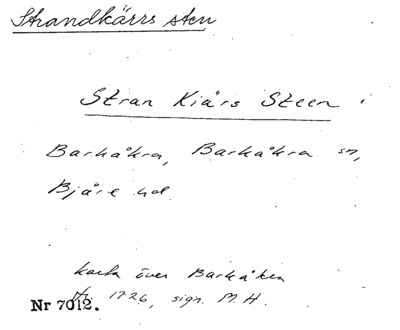 Strandkärrs sten
Stran Kiärs Steen
Barkåkra, Barkåkra sn,
Bjäre hd.
karta över Barkåkra
1726, sign. M.H.
Nr 7012.